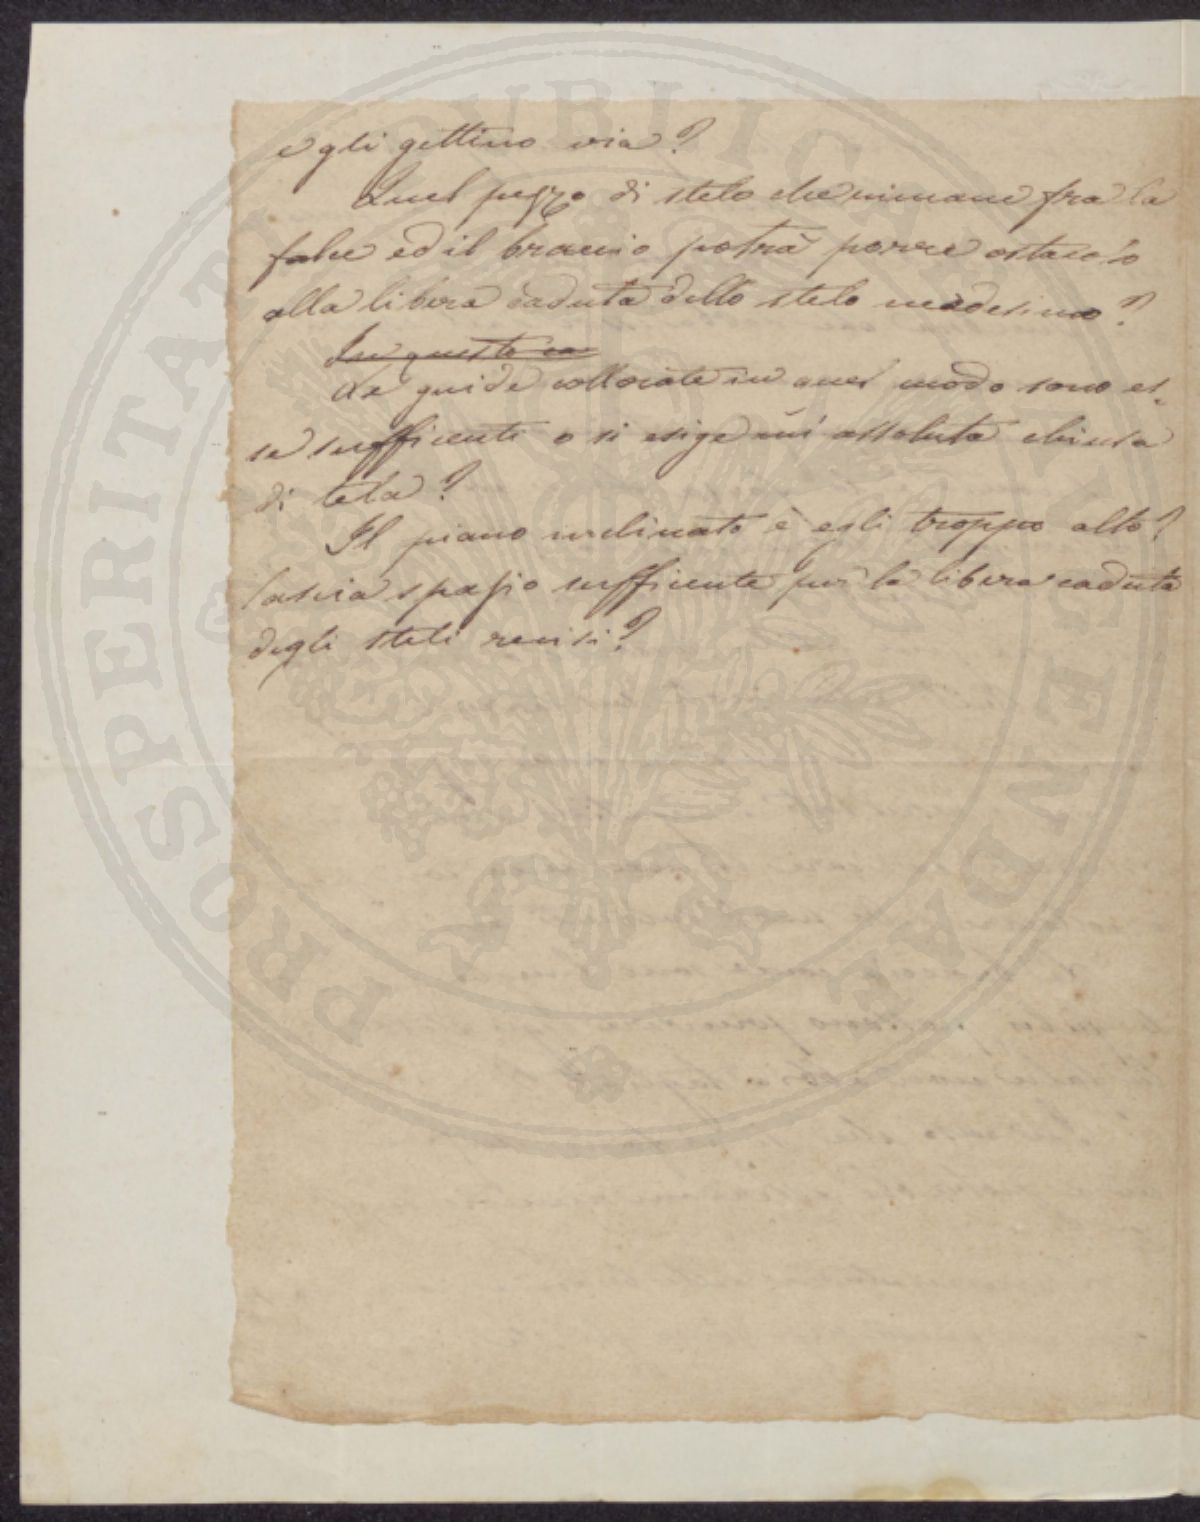 e gli gettino via?
Quel pezzo di stelo che rimane fra la
falce ed il braccio potrà porre ostacolo
alla libera caduta dello stelo medesimo?
In questo ca
Le guide collocate in quel modo sono es-
se sufficente o si esige un' assoluta chiusa
di tela?
Il piano inclinato è egli troppo alto?
lascia spazio sufficente per la libera caduta
degli steli recisi?
PROSPERITATI PUBLICAE AUGENDAE